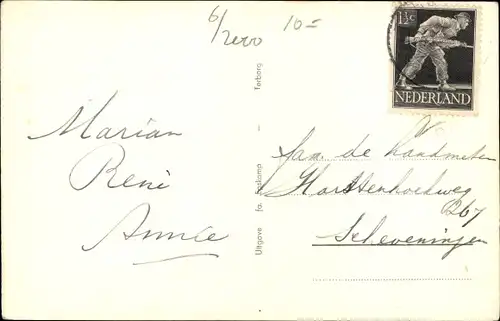 6/2000 10=
1½c
NEDERLAND
Marian
René
Annie
Uitgave fa. Enskamp — Terborg
Fam. de Handmeten
Harstenhoekweg
267
Scheveningen